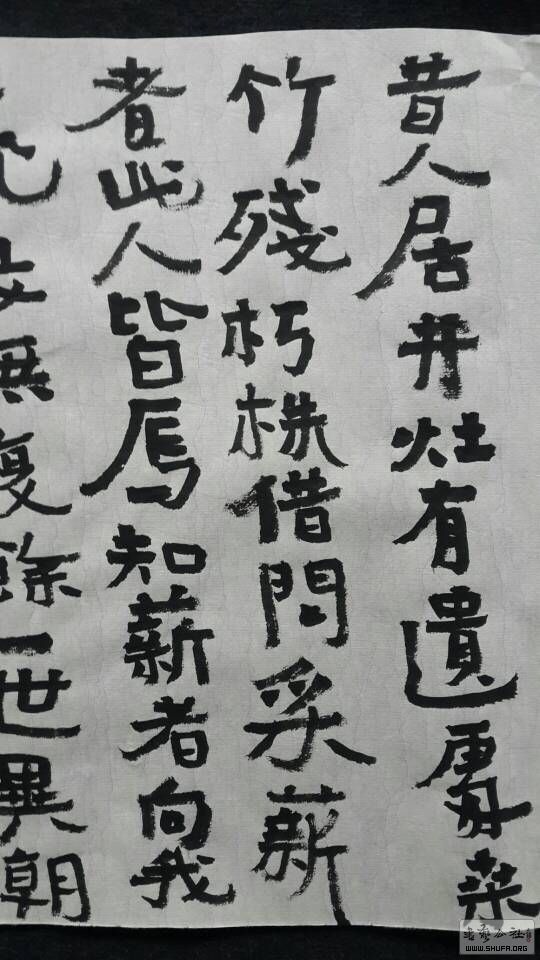 昔人居井灶有遺處桒
竹殘朽株借問采薪
者此人皆焉知薪者向我
無復餘一世異朝
书艺公社
WWW.SHUFA.ORG